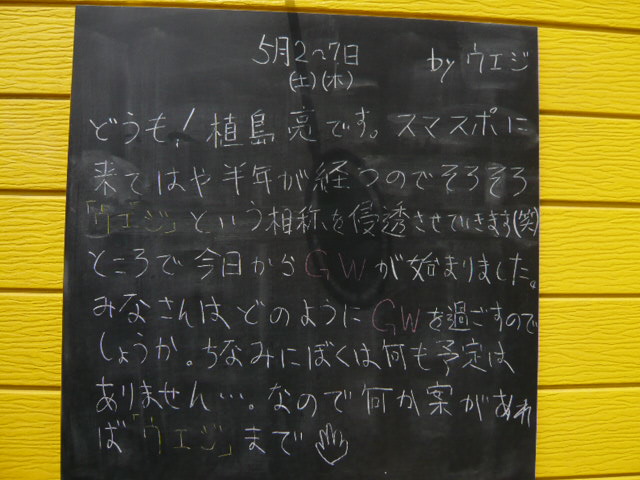 5月2~7日
(土)(木)
by ウエジ
どうも!植島亮です。スマスポに
来てはや半年が経つのでそろそろ
「ウエジ」という相称を侵透させていきます(笑)
ところで今日からGWが始まりました。
みなさんは、どのようにGWを過ごすので
しょうか。ちなみにぼくは何も予定は
ありません…。なので何か案があれ
ば「ウエジ」まで